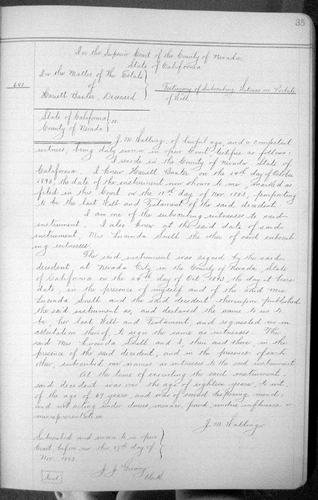 35
In the Superior Court of the County of Nevada,
State of California
In the Matter of the Estate
of
Harriett Baxter, Deceased
Testimony of Subscribing Witness on Probate
of Will
State of California } ss.
County of Nevada
J. M. Walling, of lawful age, and a competent
witness, being duly sworn in open Court, testifies as follows:
I reside in the County of Nevada State of
California. I knew Harriett Baxter on the day of October
the date of the instrument now shown to me, marked as
filed in this Court on the day of Nov. purporting
to be the last Will and Testament of the said decedent.
I am one of the subscribing witnesses to said
instrument. I also knew at the said date of said
instrument, Mrs Lucinda Snell the other of such subscrib-
ing witnesses.
The said instrument was signed by the said
decedent, at Nevada City in the County of Nevada, State
of California on the day of Oct. the day it bears
date, in the presence of myself and of the said Mrs
Lucinda Snell and the said decedent thereupon published
the said instrument as, and declared the same to us to
be, her last Will and Testament, and requested us in
attestation thereof, to sign the same as witnesses. The
said Mrs Lucinda Snell and I, then and there, in the
presence of the said decedent, and in the presence of each
other, subscribed our names as witnesses to the said instrument.
At the time of executing the said instrument,
said decedent was over the age of eighteen years, to wit,
of the age of 67 years, and was of sound disposing mind,
and not acting under duress, menace, fraud, undue influence or
misrepresentation.
J. M. Walling
Subscribed and sworn to in open
Court before me this 17th day of
Nov.
Clerk
Seal